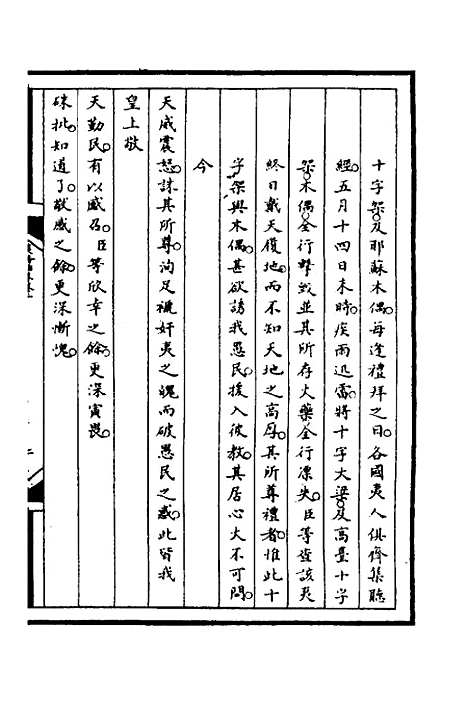 十字架。及耶蘇木偶。每逢禮拜之日。各國夷人俱儕集聽
經。五月十四日未時。疾雨迅雷。將十字大梁。及高臺十字
架。木偶。全行擊毀並其所存火藥全行漂失。臣等查該夷
終日戴天履地。而不知天地之高厚。其所尊禮者。惟此十
字架與木偶。甚欲誘我愚民。援入彼教。其居心大不可問。
今
天威震怒。誅其所尊。洵足褫奸夷之魄而破愚民之惑。此皆我
皇上敬
天勤民。有以感召。臣等欣幸之餘。更深寅畏。
硃批知道了。敬感之餘。更深慚愧。